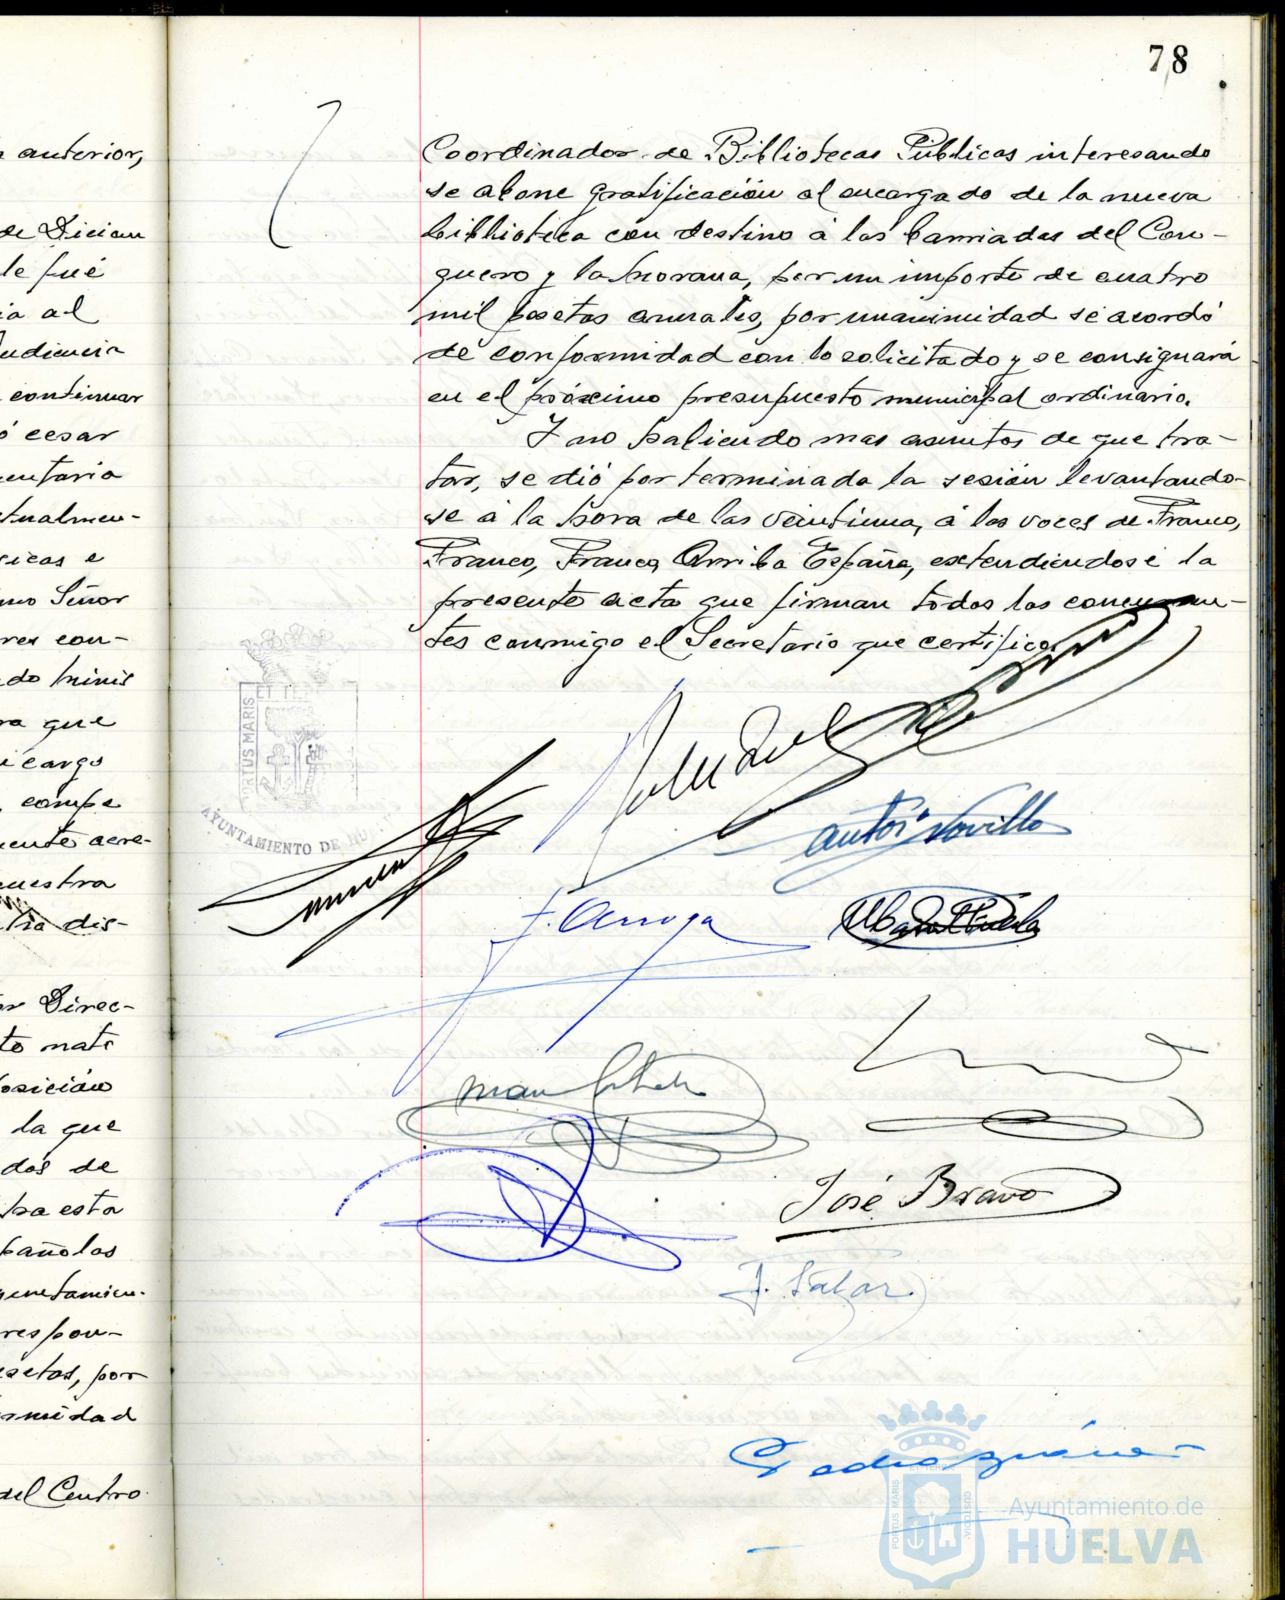 78
anterior,
de Diciem
le fué
ia al
udiencia
continuar
ó cesar
mentaria
tualmen-
sicas e
mo Señor
res con-
do minis
ra que
cargo
compe
mente acre-
muestra
tia dis-
or Direc-
to mate
osición
la que
dos de
ha esta
pañolas
respon-
esetas, por
ormidad
del Centro
Coordinador de Bibliotecas Públicas interesando
se abone gratificación al encargado de la nueva
biblioteca con destino á las barriadas del Con-
quero y la horana, por un importe de cuatro
mil pesetas anuales, por unanimidad se acordó
de conformidad con lo solicitado y se consignará
en el próximo presupuesto municipal ordinario.
Y no habiendo mas asuntos de que tra-
tar, se dió por terminada la sesión levantando-
se á la hora de las veintiuna, á las voces de Franco,
Franco, Franco, Arriba España, extendiendose la
presente acta que firman todos los concurren-
tes conmigo el Secretario que certifico.
PORTUS MARIS
ET TERRE
AYUNTAMIENTO DE HU
Antº Novillo
J. Arroya
José Bravo
J. Salar
PORTUS MARIS
CUSTODIA
Ayuntamiento de
HUELVA